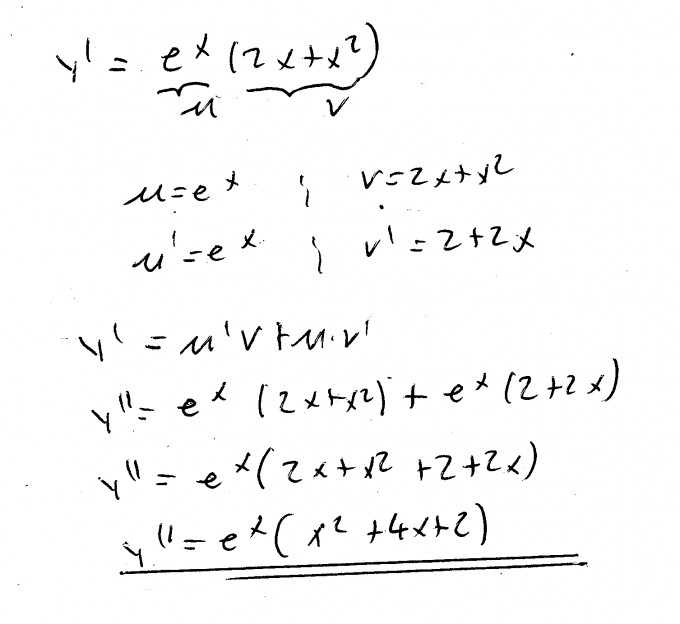 y' = e^x (2x+x²)
u v
u=e^x ; v=2x+x²
u'=e^x ; v'=2+2x
y' = u'v+u·v'
y''= e^x (2x+x²) + e^x (2+2x)
y'' = e^x(2x+x² +2+2x)
y''=e^x(x² +4x+2)